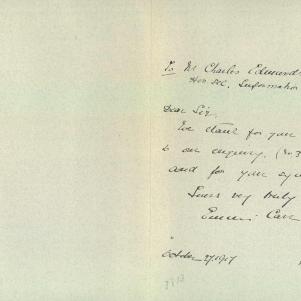 To Mr Charles Edmunds
Hon. Sec. Information
Dear Sir,
We thank for your
to our enquiry.
and for your
Yours very truly
October 27, 1917